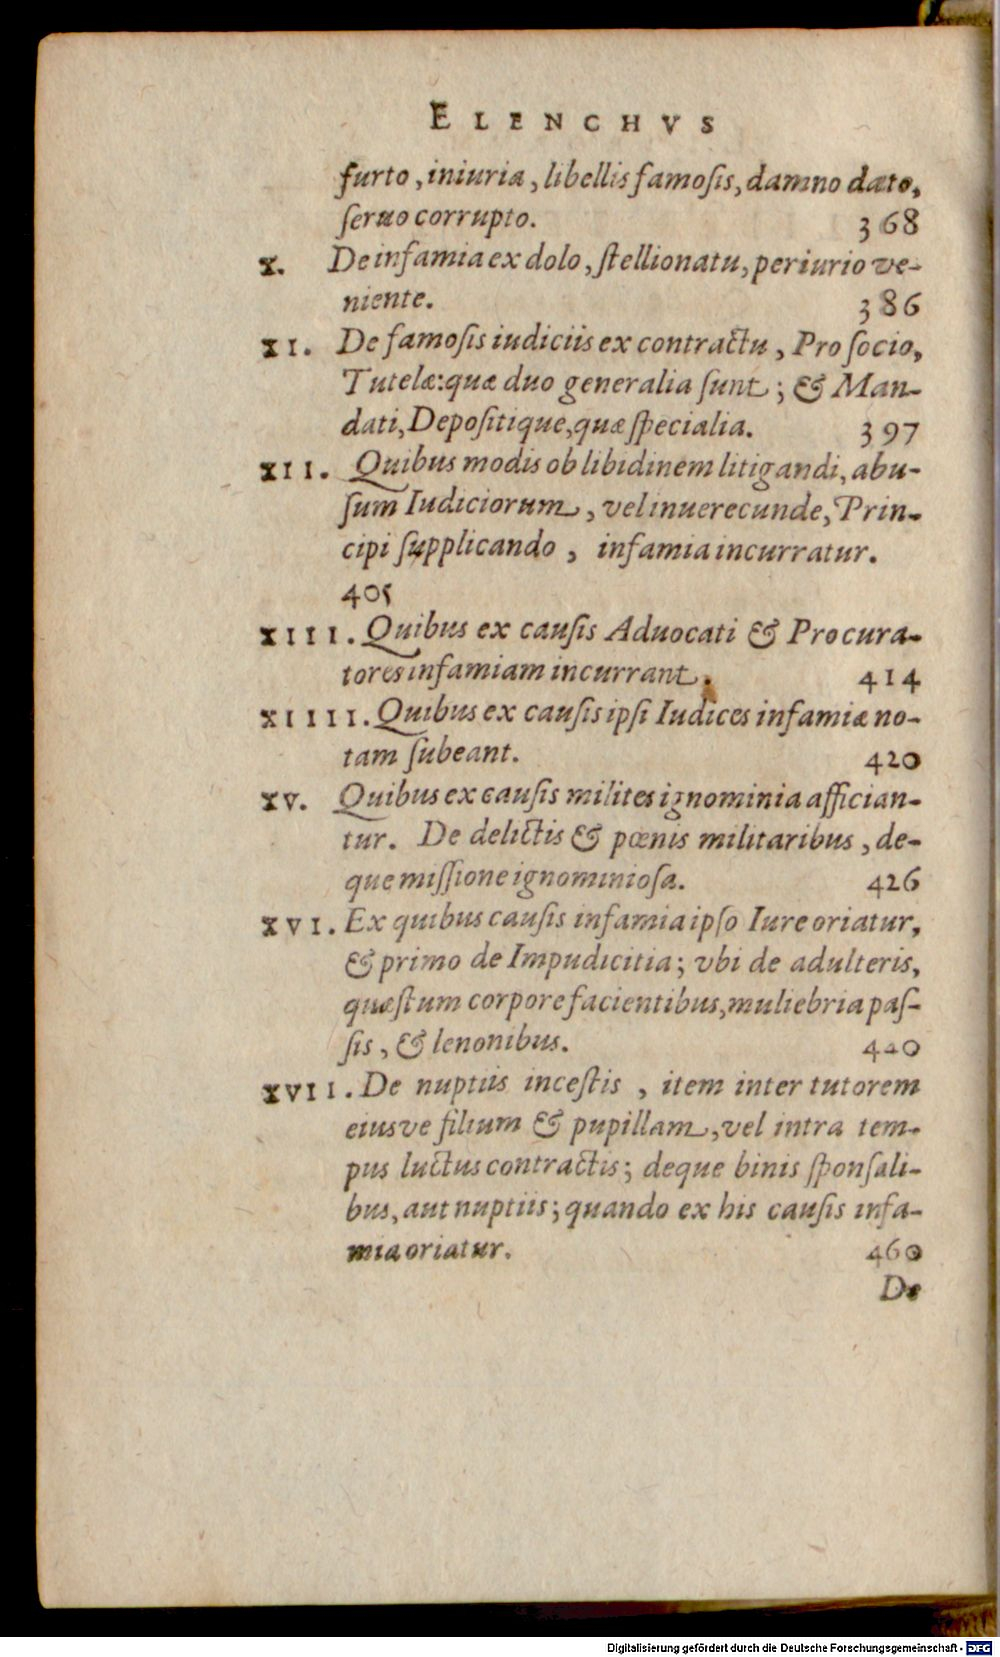 ELENCHVS
furto, iniuria, libellis famosis, damno dato,
seruo corrupto. 368
X. De infamia ex dolo, stellionatu, periurio ve-
niente. 386
XI. De famosis iudiciis ex contractu, Pro socio,
Tutelæ: quæ duo generalia sunt; & Man-
dati, Depositique, quæ specialia. 397
XII. Quibus modis ob libidinem litigandi, abu-
sum Iudiciorum, vel inuerecunde, Prin-
cipi supplicando, infamia incurratur.
405
XIII. Quibus ex causis Aduocati & Procura-
tores infamiam incurrant. 414
XIIIII. Quibus ex causis ipsi Iudices infamiæ no-
tam subeant. 420
XV. Quibus ex causis milites ignominia affician-
tur. De delictis & pœnis militaribus, de-
que missione ignominiosa. 426
XVI. Ex quibus causis infamia ipso Iure oriatur,
& primo de Impudicitia; vbi de adulteris,
quæstum corpore facientibus, muliebria pas-
sis, & lenonibus. 440
XVII. De nuptiis incestis, item inter tutorem
eiusve filium & pupillam, vel intra tem-
pus luctus contractis; deque binis sponsali-
bus, aut nuptiis; quando ex his causis infa-
mia oriatur. 460
De
Digitalisierung gefördert durch die Deutsche Forschungsgemeinschaft - DFG